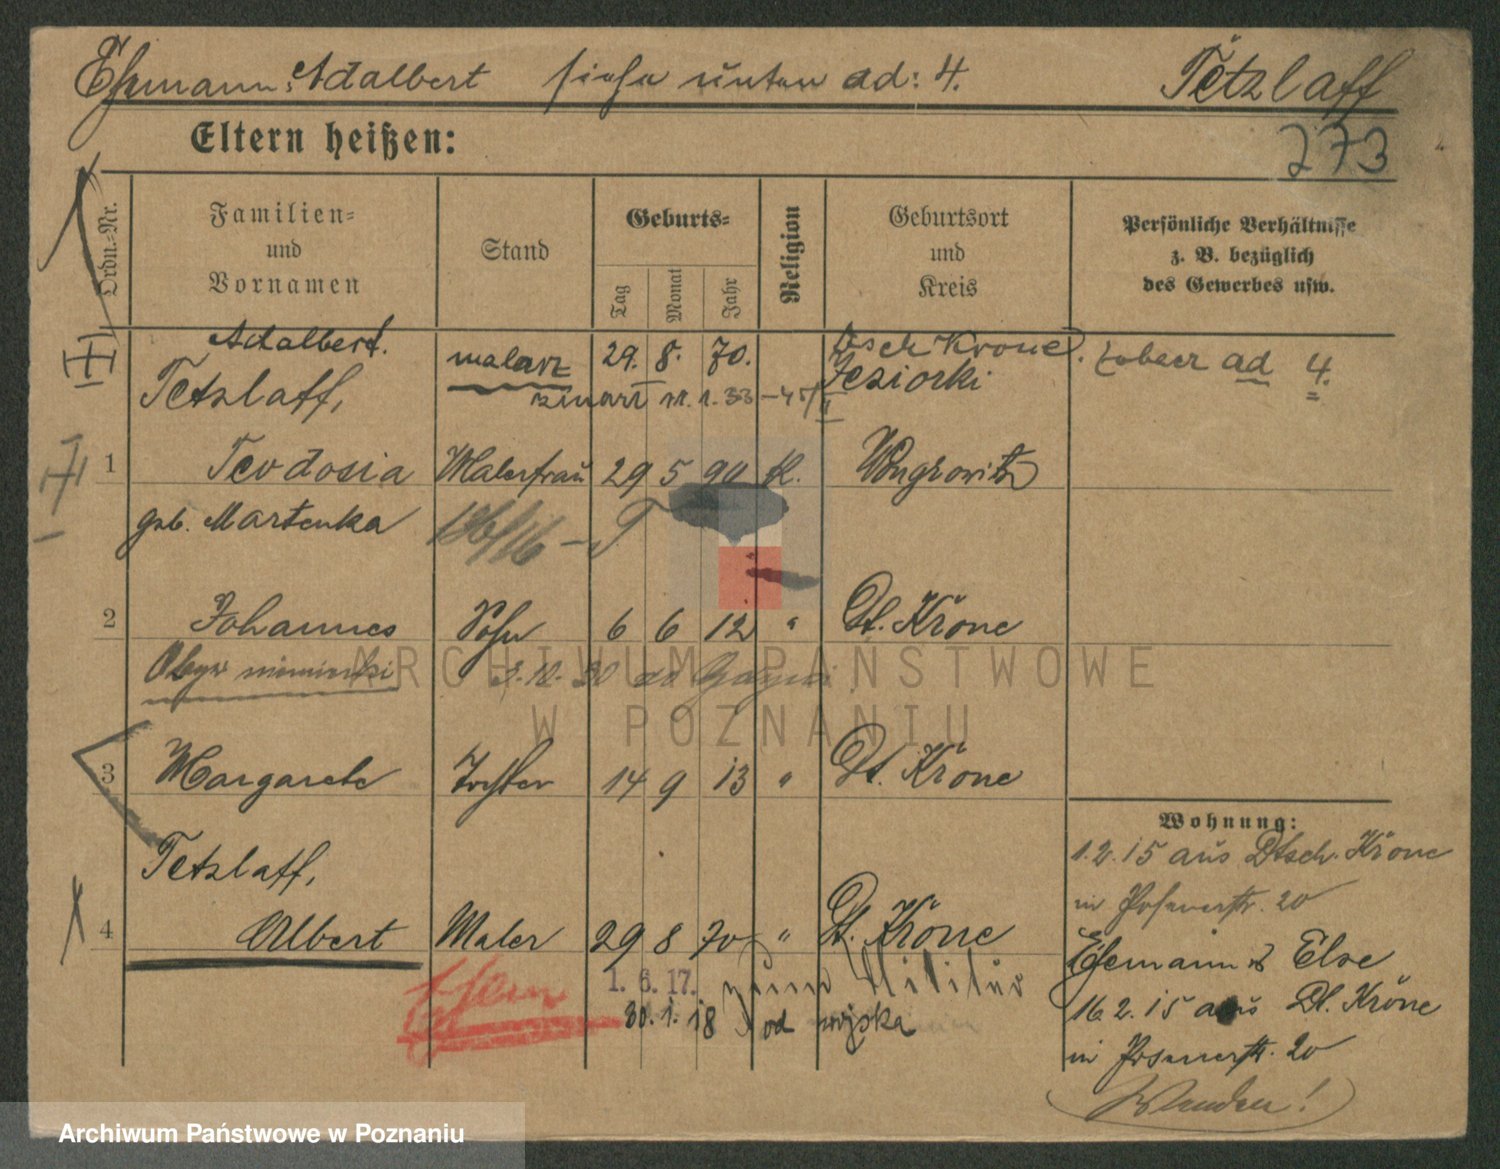 Ehemann: Adalbert siehe unten ad: 4. Tetzlaff
Eltern heißen: 273
Ordn.-Nr.
Familien-
und
Vornamen
Stand
Geburts-
Tag
Monat
Jahr
Religion
Geburtsort
und
Kreis
Persönliche Verhältnisse
z. B. bezüglich
des Gewerbes usw.
Adalbert. malarz 29. 8. 70. Dsch Krone. zobacz ad 4.
Tetzlaff, Jeziorki
zmarł 1. 33
1 Teodosia Malerfrau 29 5 90 k. Wongrowitz
geb. Martenka
2 Johannes Sohn 6 6 12 " Dt. Krone
Obyw niemiecki 3. 10. 30 do Gdyni
3 Margarete Tochter 14 9 13 " Dt. Krone
Tetzlaff,
4 Albert Maler 29 8 70 " Dt. Krone
Ehem 1. 6. 17. zum Militär
30. 1. 18 od wojska
Wohnung:
1.2.15 aus Dtsch. Krone
in Posenerstr. 20
Ehemann Else
16.2.15 aus Dt. Krone
in Posenerstr. 20
Wenden!
ARCHIWUM PAŃSTWOWE
W POZNANIU
Archiwum Państwowe w Poznaniu